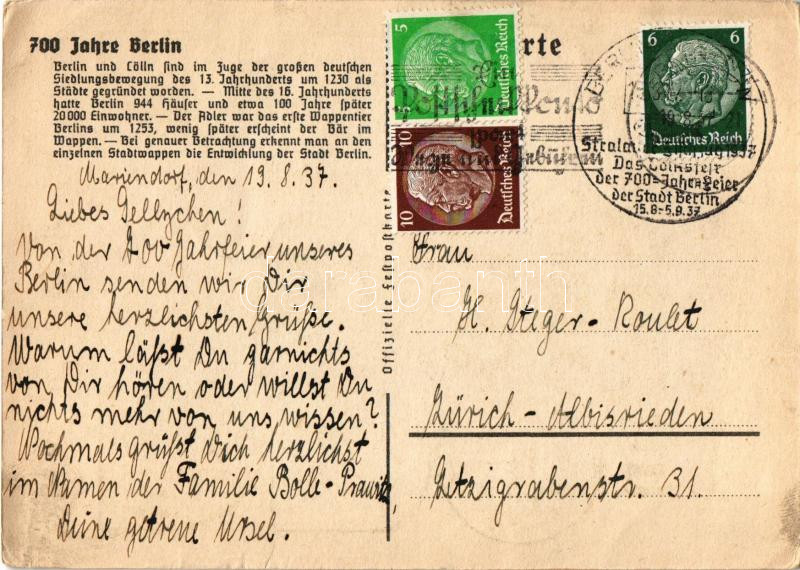 700 Jahre Berlin
Berlin und Cölln sind im Zuge der großen deutschen
Siedlungsbewegung des 13. Jahrhunderts um 1230 als
Städte gegründet worden. — Mitte des 16. Jahrhunderts
hatte Berlin 944 Häuser und etwa 100 Jahre später
20000 Einwohner. — Der Adler war das erste Wappentier
Berlins um 1253, wenig später erscheint der Bär im
Wappen. — Bei genauer Betrachtung erkennt man an den
einzelnen Stadtwappen die Entwicklung der Stadt Berlin.
Mariendorf, den 19.8.37.
Liebes Nellychen!
Von der 700 Jahrfeier unseres
Berlin senden wir Dir
unsere herzlichsten Grüße.
Warum läßt Du garnichts
von Dir hören oder willst Du
nichts mehr von uns wissen?
Nochmals grüßt Dich herzlichst
im Namen der Familie Bolle-
Deine getreue Ursel.
Offizielle Festpostkarte
5
5
Deutsches Reich
10
10
Deutsches Reich
Ein
Postscheckkonto
spart
Wege und Gebühren
rte
6
6
Deutsches Reich
BERLIN
19.8.37
1937
Das Volksfest
der 700-Jahr-Feier
der Stadt Berlin
15.8-5.9.37
Frau
H. Steger-Roulet
Zürich-Albisrieden
Letzigrabenstr. 31.
darabanth